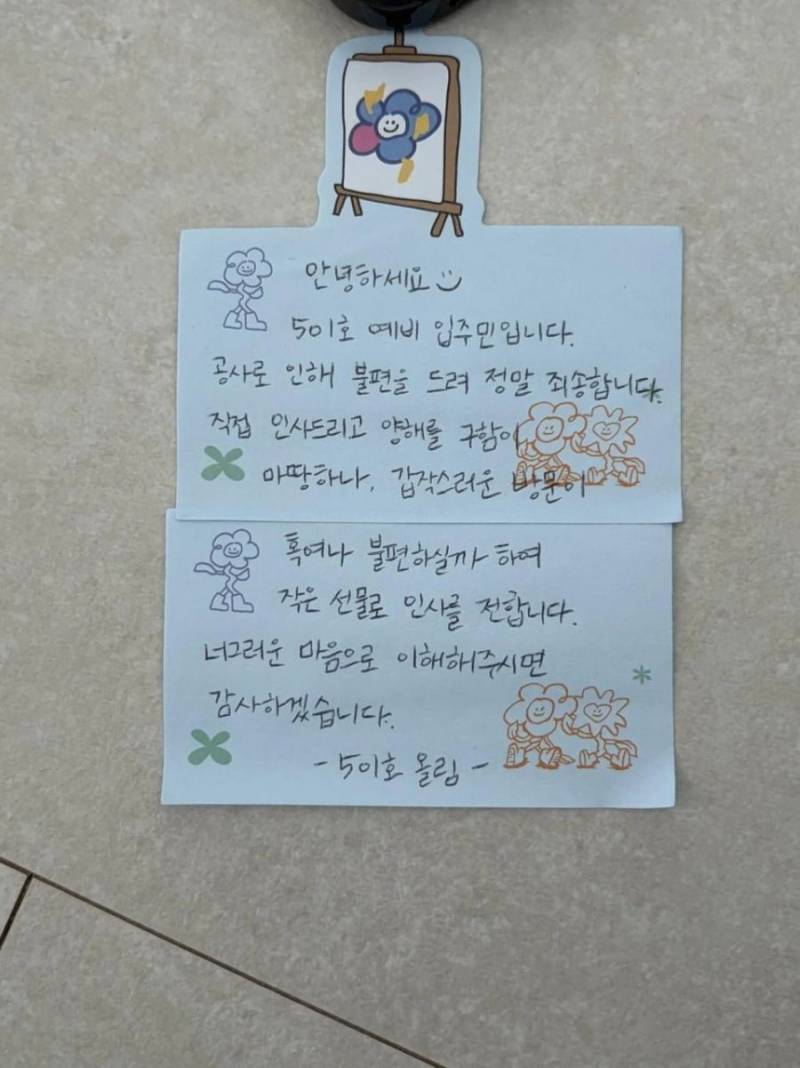 안녕하세요
501호 예비 입주민입니다.
공사로 인해 불편을 드려 정말 죄송합니다.
직접 인사드리고 양해를 구함이
마땅하나, 갑작스러운 방문이
혹여나 불편하실까 하여
작은 선물로 인사를 전합니다.
너그러운 마음으로 이해해주시면
감사하겠습니다.
- 501호 올림 -